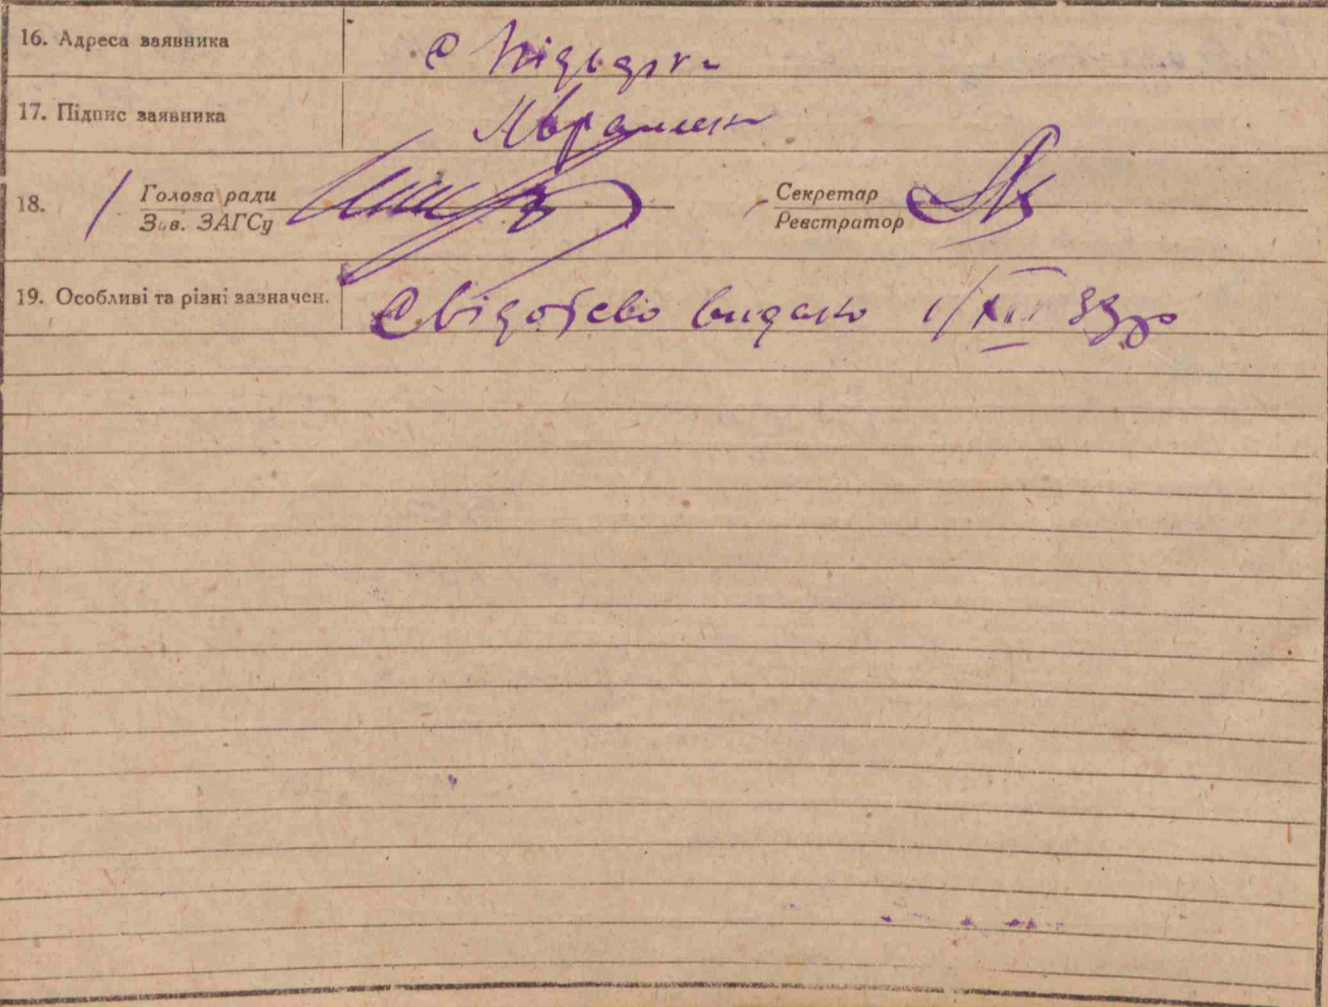 16. Адреса заявника с
17. Підпис заявника Авраменко
18. Голова ради Секретар
Зав. ЗАГСу Реєстратор
19. Особливі та різні зазначен. Свідоцтво видано 1/XII 33 р